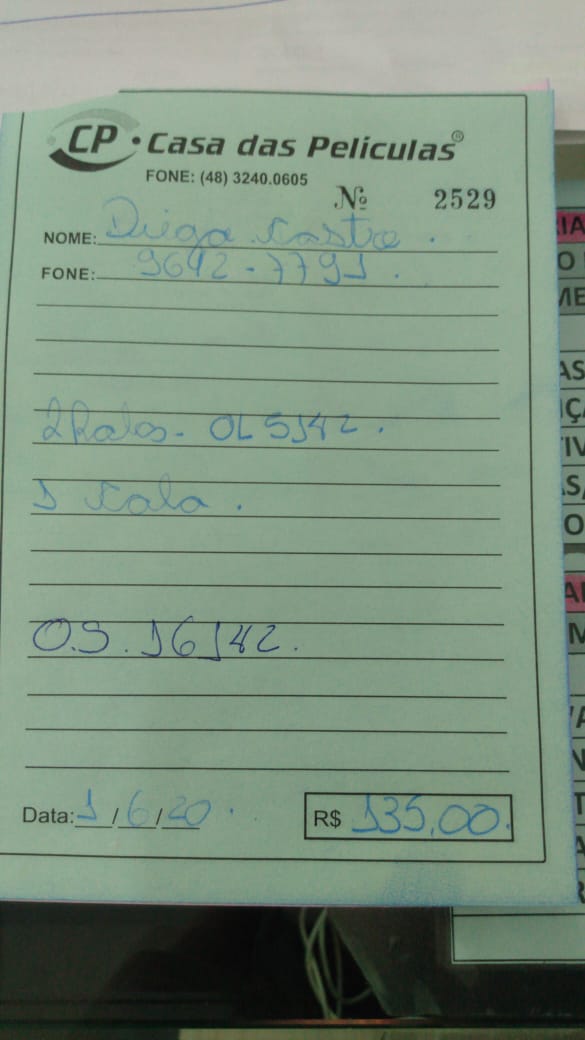 CP · Casa das Películas®
FONE: (48) 3240.0605
Nº 2529
NOME: Diego Castro.
FONE: 9642-7791.
2 Rolos - OL 5142.
1 Cola.
O.S. 16142.
Data: 1/6/20.
R$ 135,00.
IA
O
ME
AS
ÇA
TIV
S,
O
M